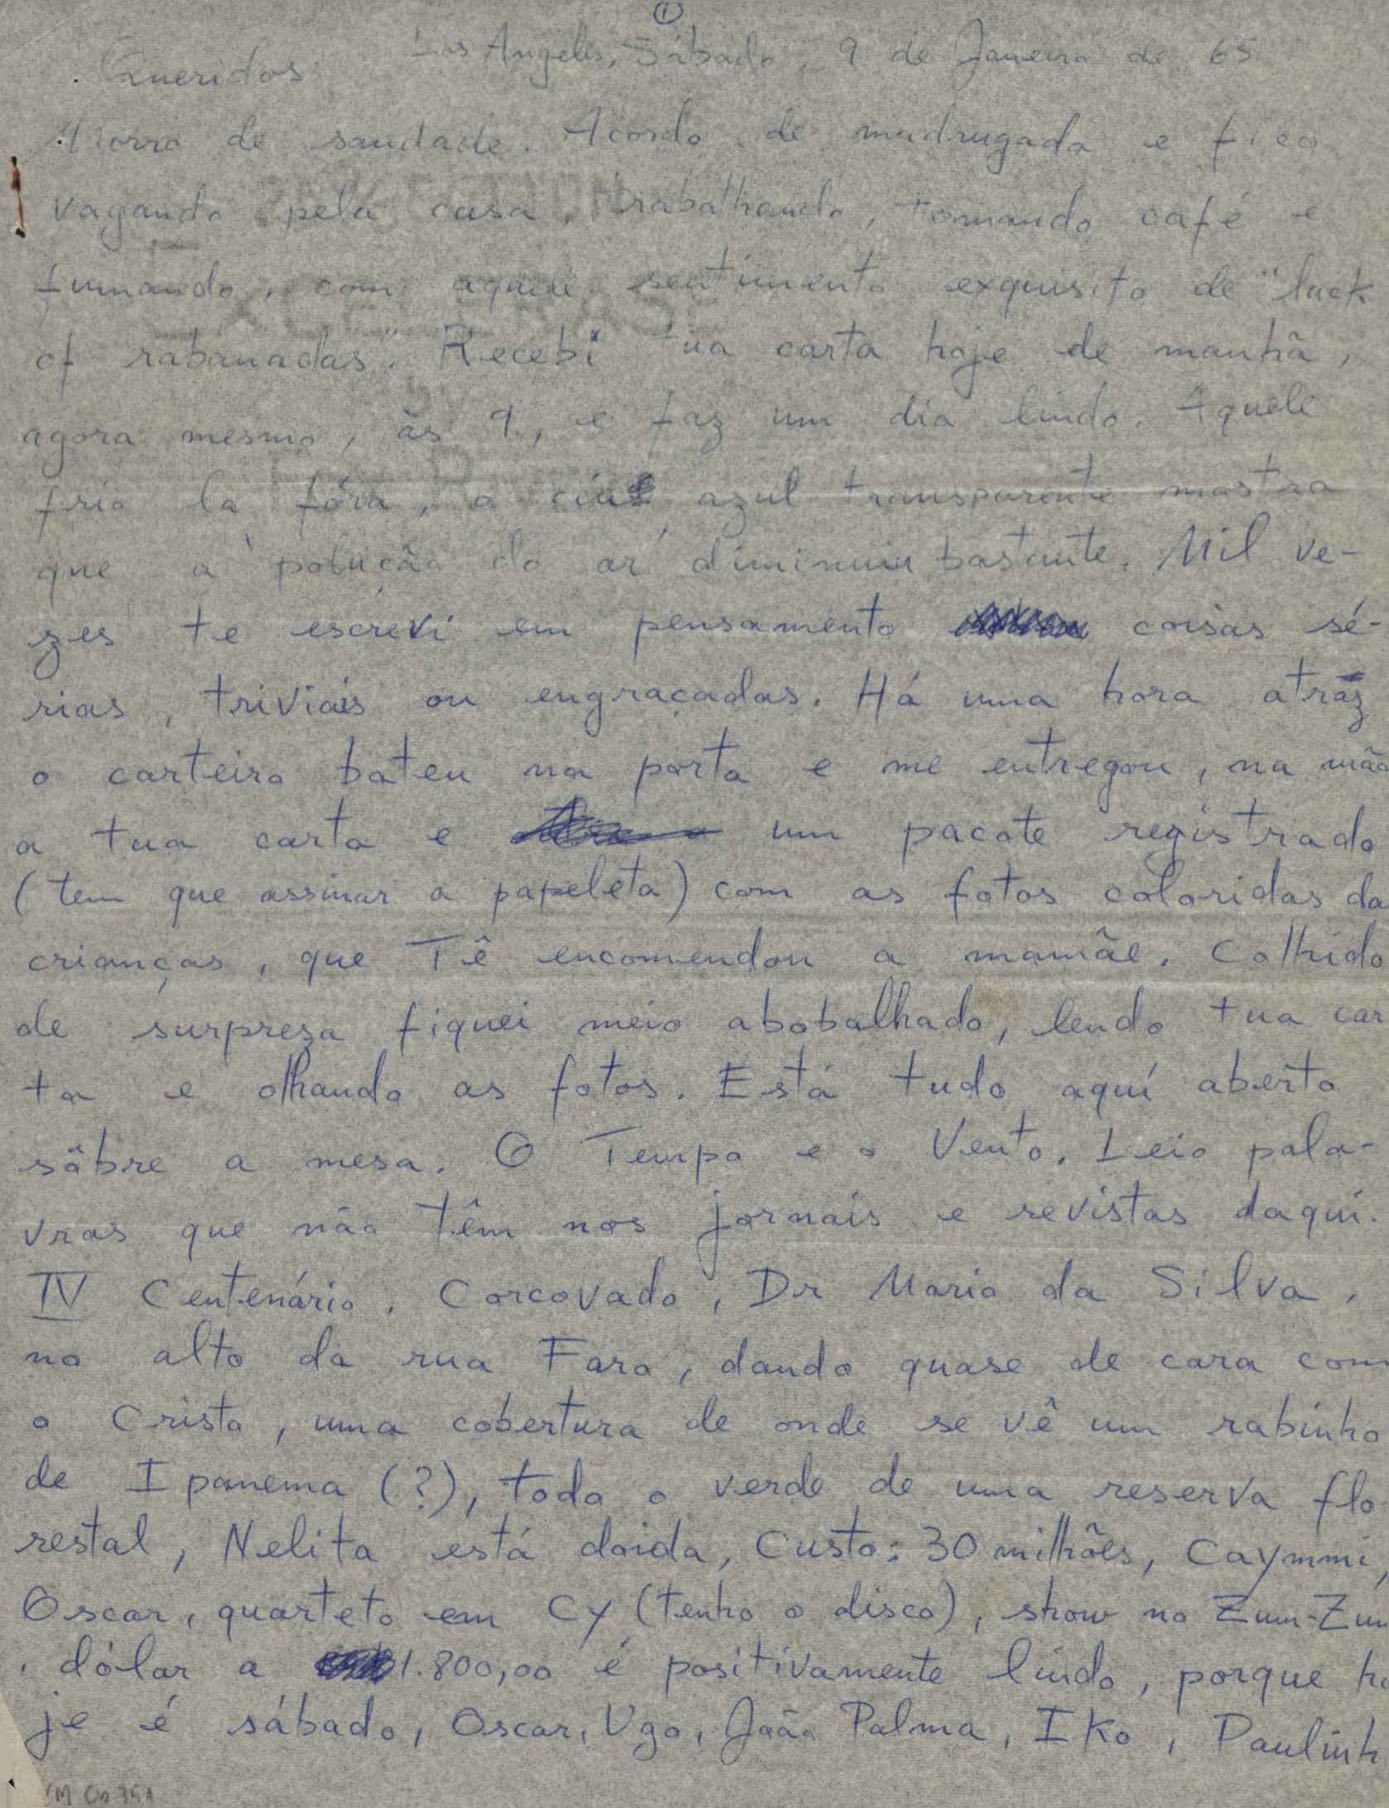 ①
Los Angeles, Sábado, 9 de Janeiro de 65
Queridos
Morro de saudade. Acordo de madrugada e fico
vagando pela casa, trabalhando, tomando café e
fumando, com aquele sentimento exquisito de "lack
of rabanadas". Recebi tua carta hoje de manhã,
agora mesmo, às 9, e faz um dia lindo. Aquele
frio lá fóra, o céu azul transparente mostra
que a polução do ar diminuiu bastante. Mil ve-
zes te escrevi em pensamento coisas sé-
rias, triviais ou engraçadas. Há uma hora atráz
o carteiro bateu na porta e me entregou, na mão
a tua carta e um pacote registrado
(tem que assinar a papeleta) com as fotos coloridas da
crianças, que Tê encomendou a mamãe. Colhido
de surpresa fiquei meio abobalhado, lendo tua car
ta e olhando as fotos. Está tudo aquí aberto
sôbre a mesa. O Tempo e o Vento. Leio pala-
vras que não têm nos jornais e revistas daquí.
IV Centenário, Corcovado, Dr Mario da Silva,
no alto da rua Faro, dando quase de cara com
o Cristo, uma cobertura de onde se vê um rabinho
de Ipanema (?), todo o verde de uma reserva flo
restal, Nelita está doida, Custo: 30 milhões, Caymmi,
Oscar, quarteto em Cy (tenho o disco), show no Zum-Zum
, dólar a 1.800,00 é positivamente lindo, porque ho
je é sábado, Oscar, Ugo, João Palma, Iko, Paulinh